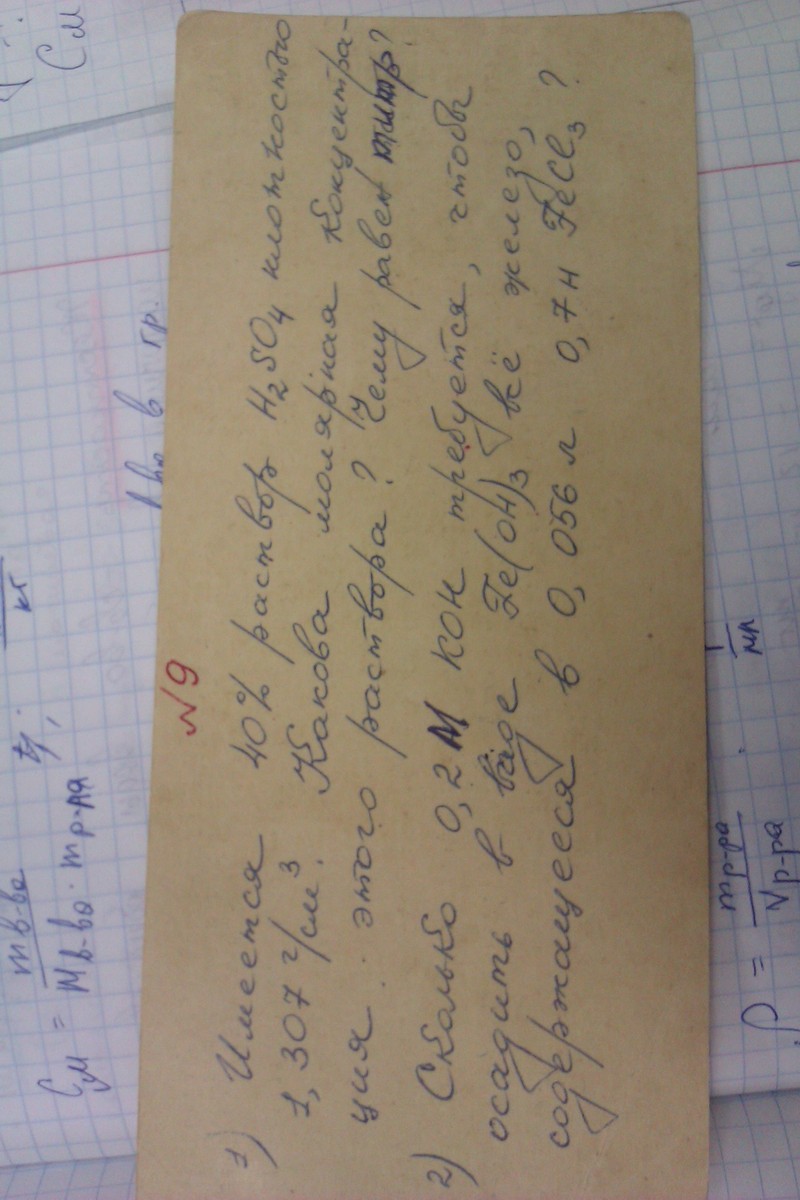 №9
1) Имеется 40% раствор H₂SO₄ плотностью
1,307 г/см³. Какова молярная концентра-
ция этого раствора? Чему равен титр?
2) Сколько 0,2 М КОН требуется, чтобы
осадить в виде Fe(OH)₃ всё железо,
содержащееся в 0,056 л 0,7 н FeCl₃?
См
в гр.
кг
Cм = m в-ва / М в-ва · m р-ля
ρ = m р-ра / V р-ра